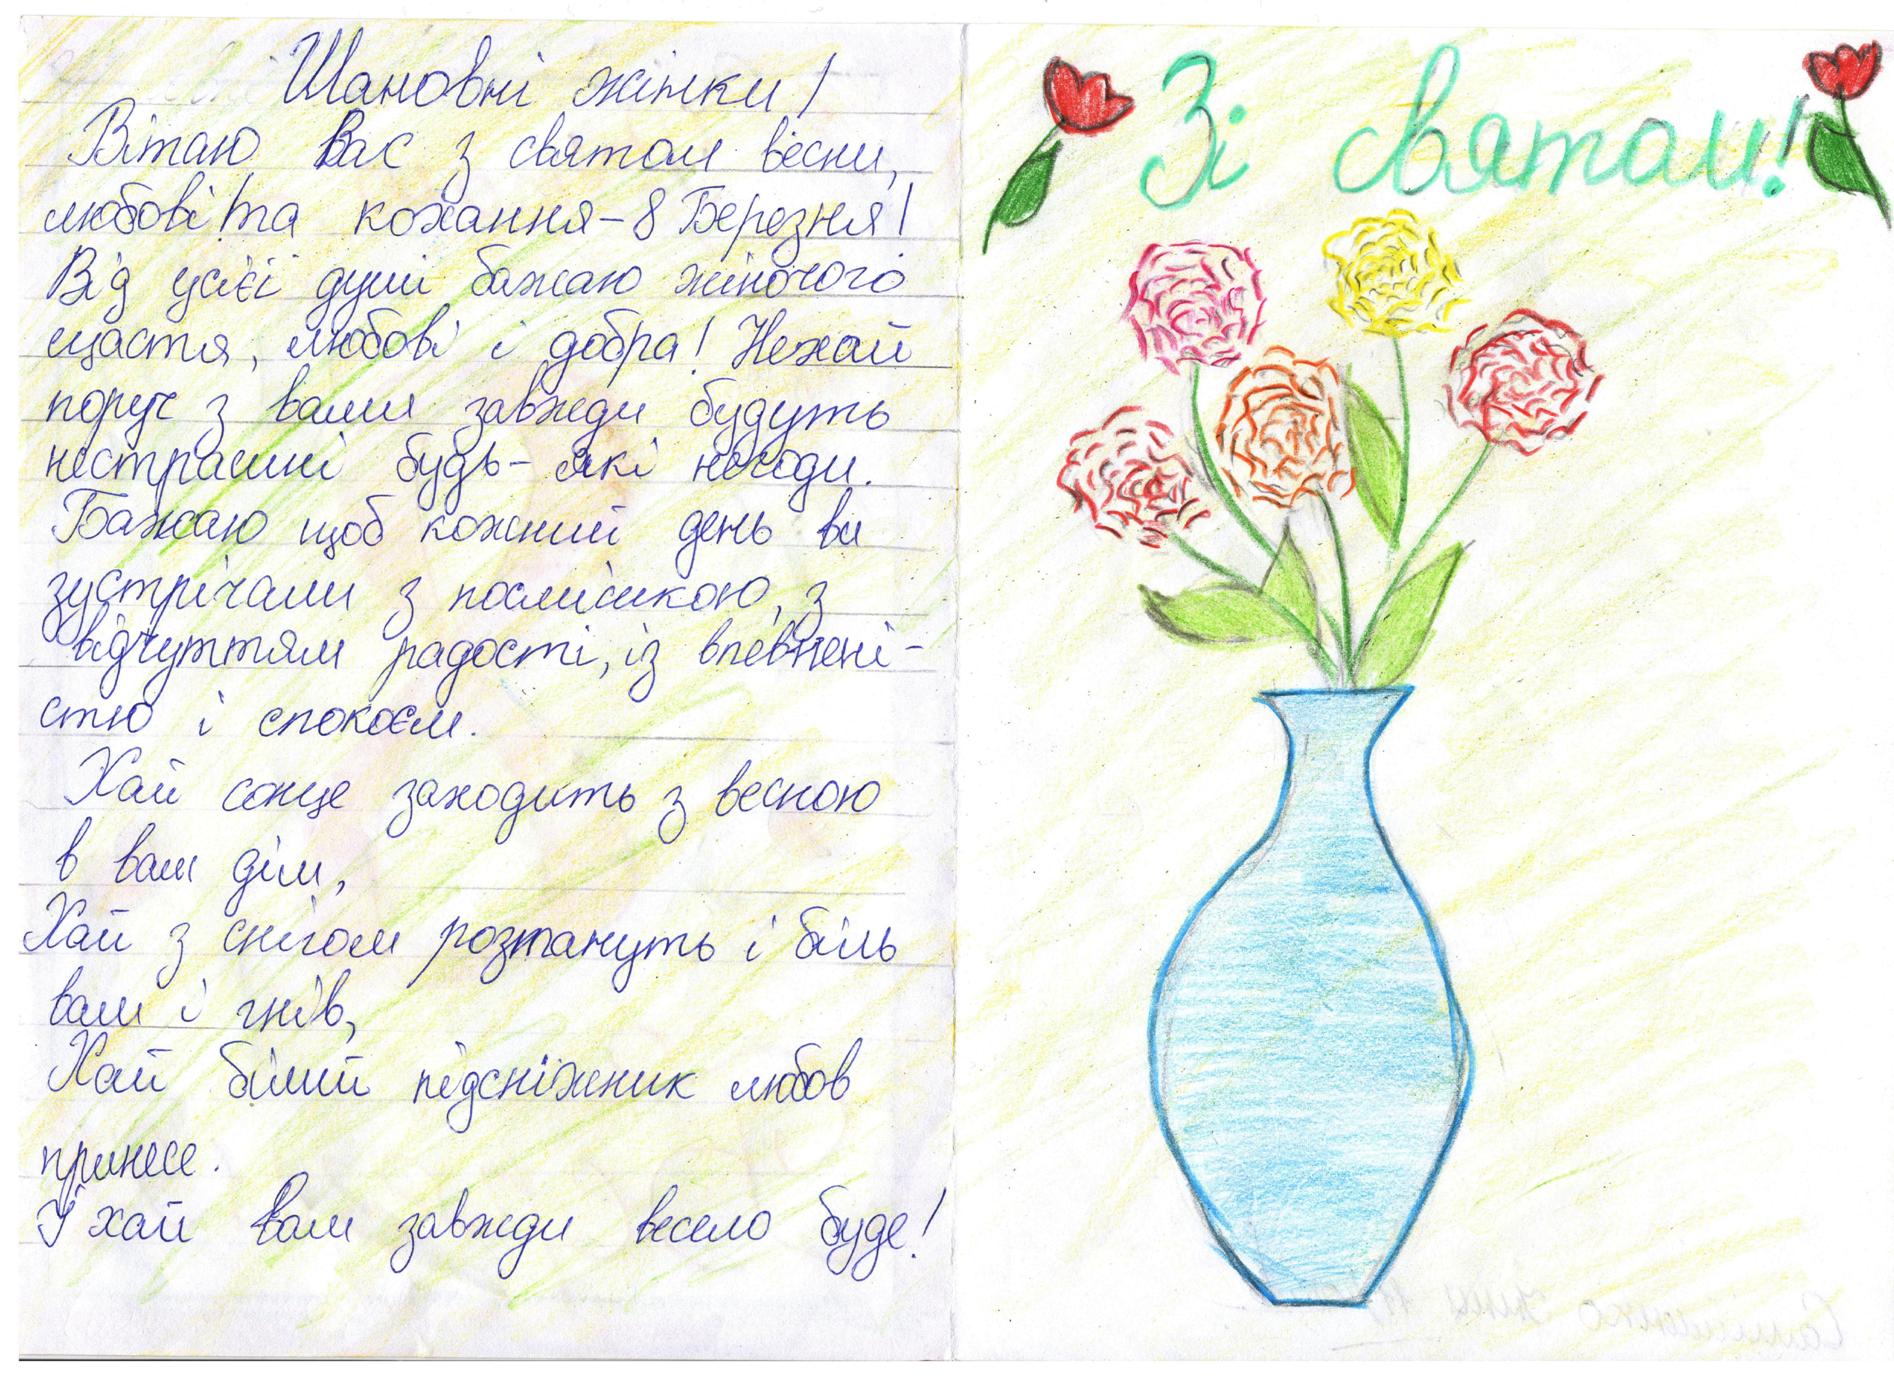 Шановні жінки!
Вітаю Вас з святом весни,
любові та кохання - 8 Березня!
Від усієї душі бажаю жіночого
щастя, любові і добра! Нехай
поруч з вами завжди будуть
нестрашні будь-які негоди.
Бажаю щоб кожний день ви
зустрічали з посмішкою, з
відчуттям радості, із впевнені-
стю і спокоєм.
Хай сонце заходить з весною
в ваш дім,
Хай з снігом розтануть і біль
вам і гнів,
Хай білий підсніжник любов
принесе.
І хай вам завжди весело буде!
Зі святом!